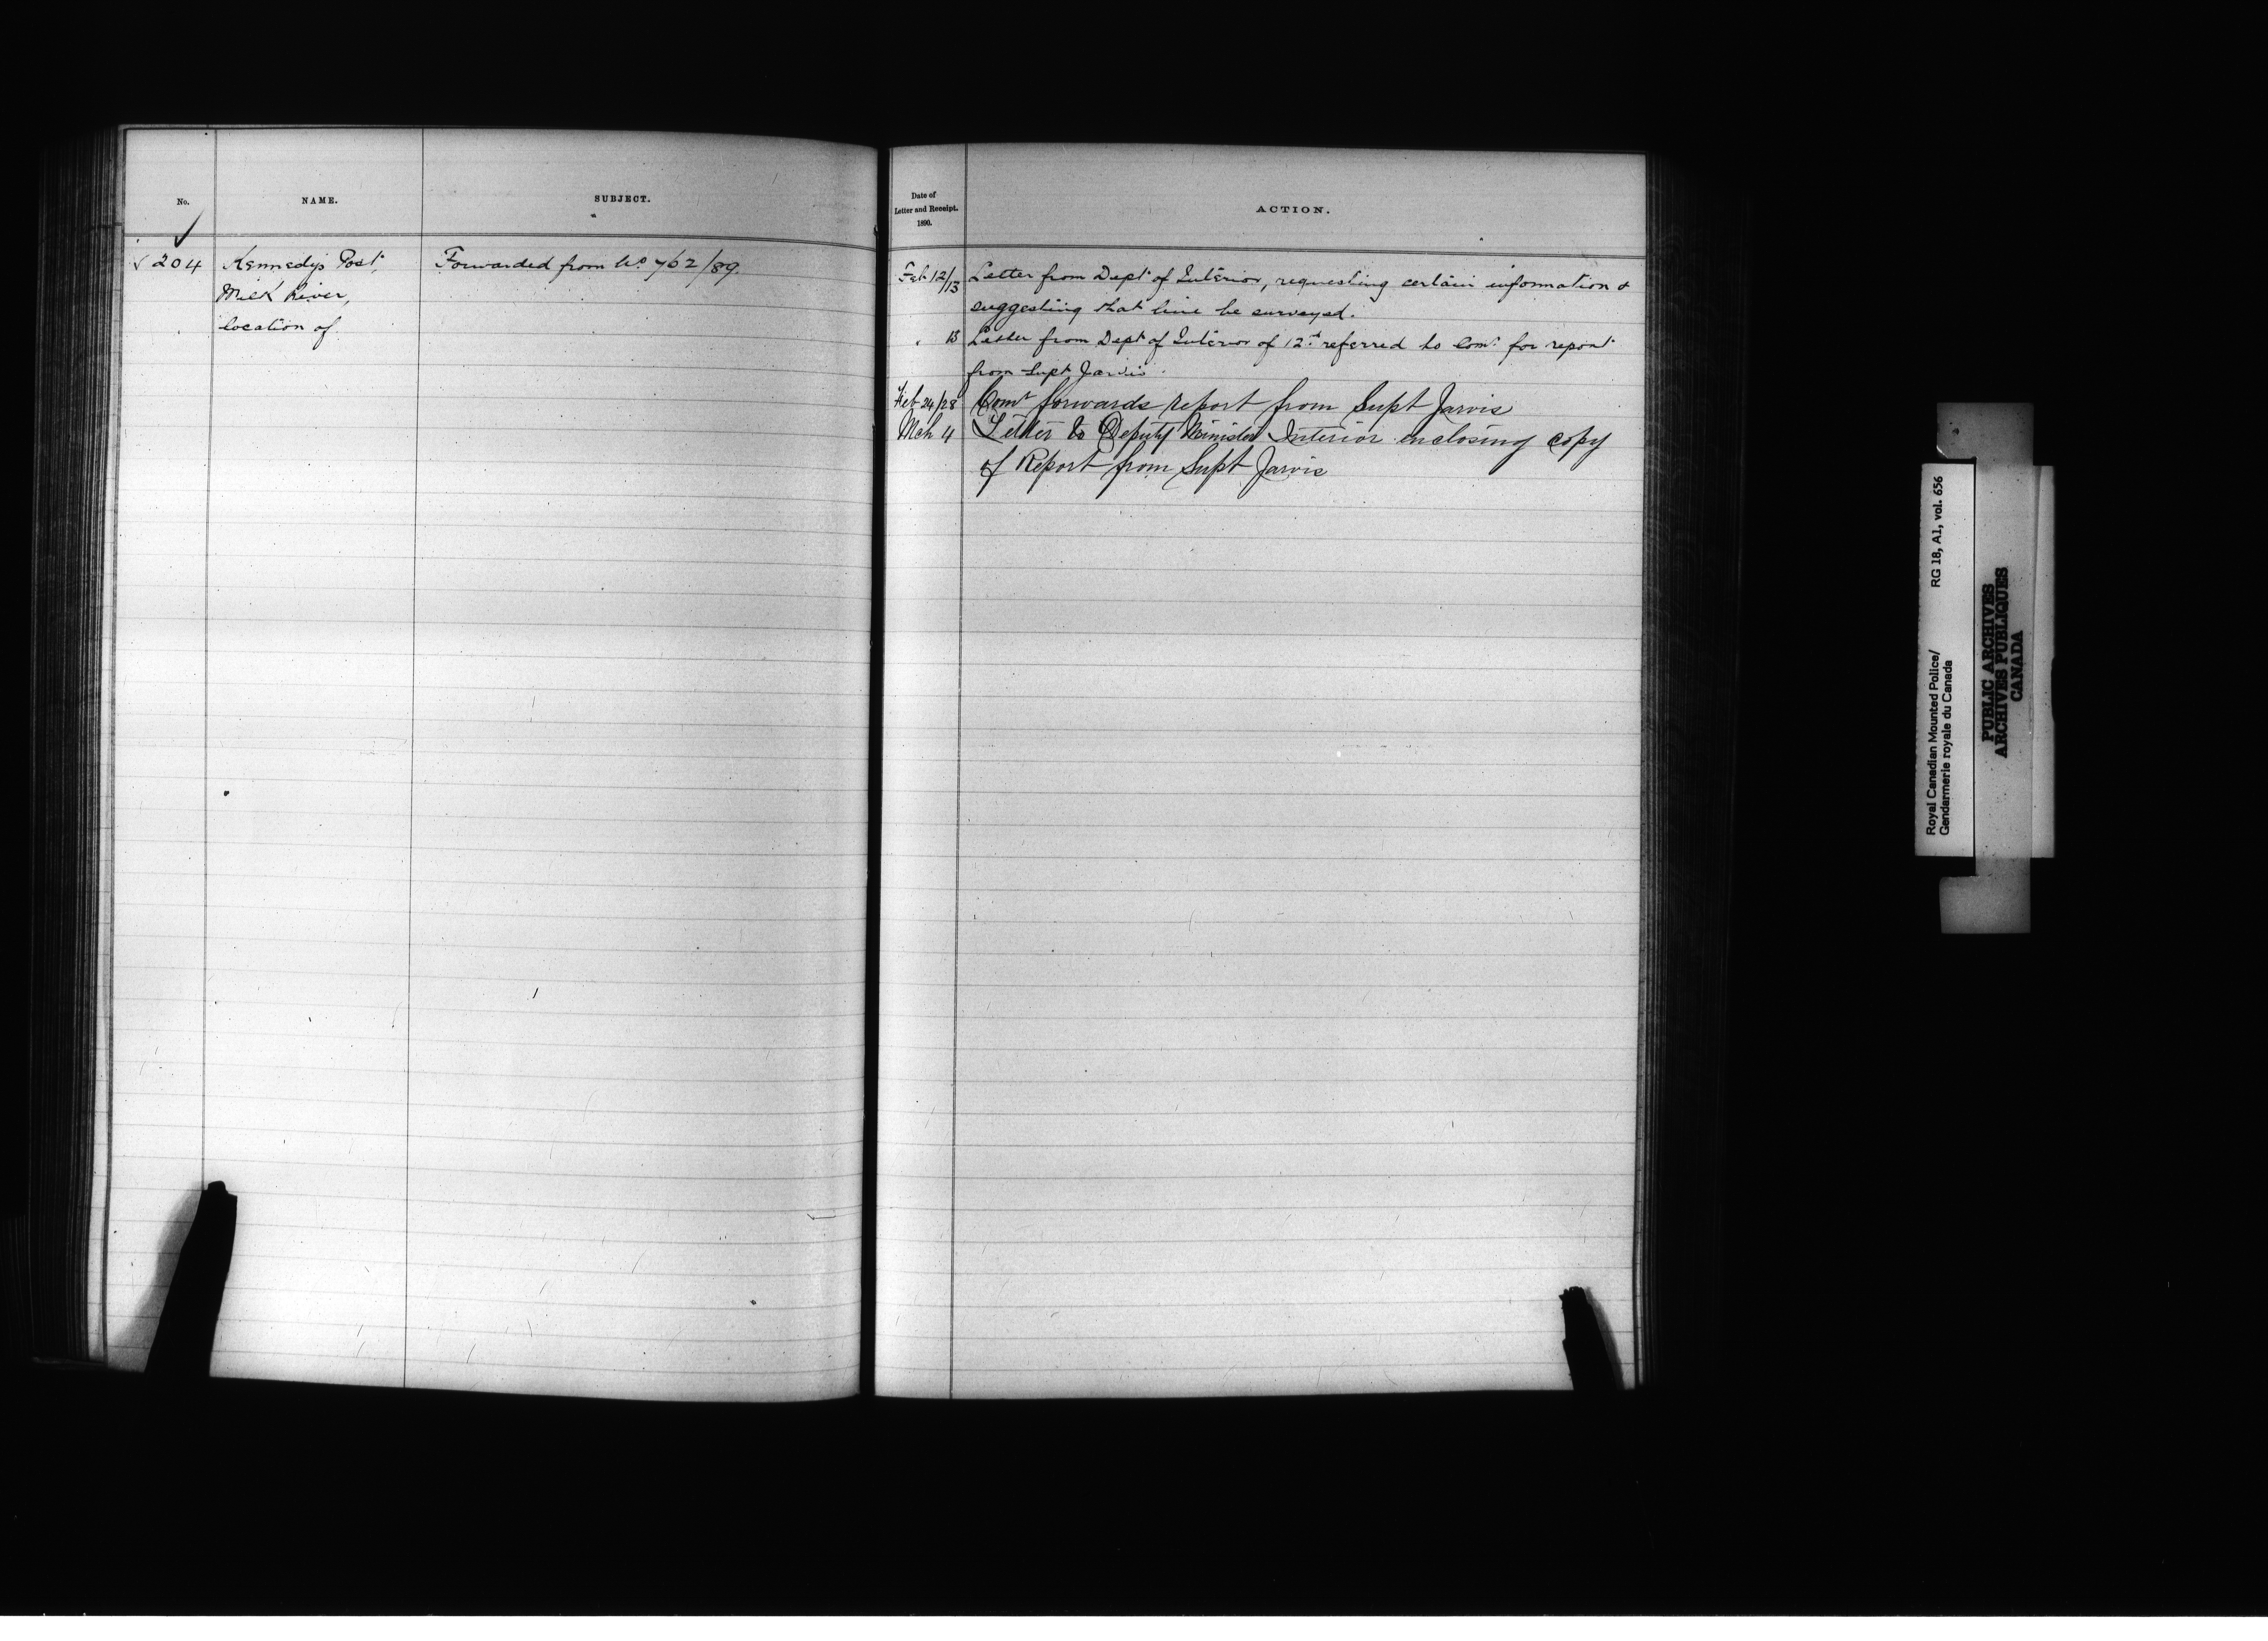 No.
NAME.
SUBJECT.
✓
✓ 204
Kennedy's Post,
Milk River,
location of.
Forwarded from No 762/89.
Date of
Letter and Receipt.
1890.
ACTION.
Feb 12/13 Letter from Dept of Interior, requesting certain information &
suggesting that line be surveyed.
" 13 Letter from Dept of Interior of 12th referred to Comr for report
from Supt Jarvis.
Feb 24/28 Comr forwards report from Supt Jarvis
Mch 4 Letter to Deputy Minister Interior enclosing copy
of Report from Supt Jarvis
Royal Canadian Mounted Police/ RG 18, A1, vol. 656
Gendarmerie royale du Canada
PUBLIC ARCHIVES
ARCHIVES PUBLIQUES
CANADA